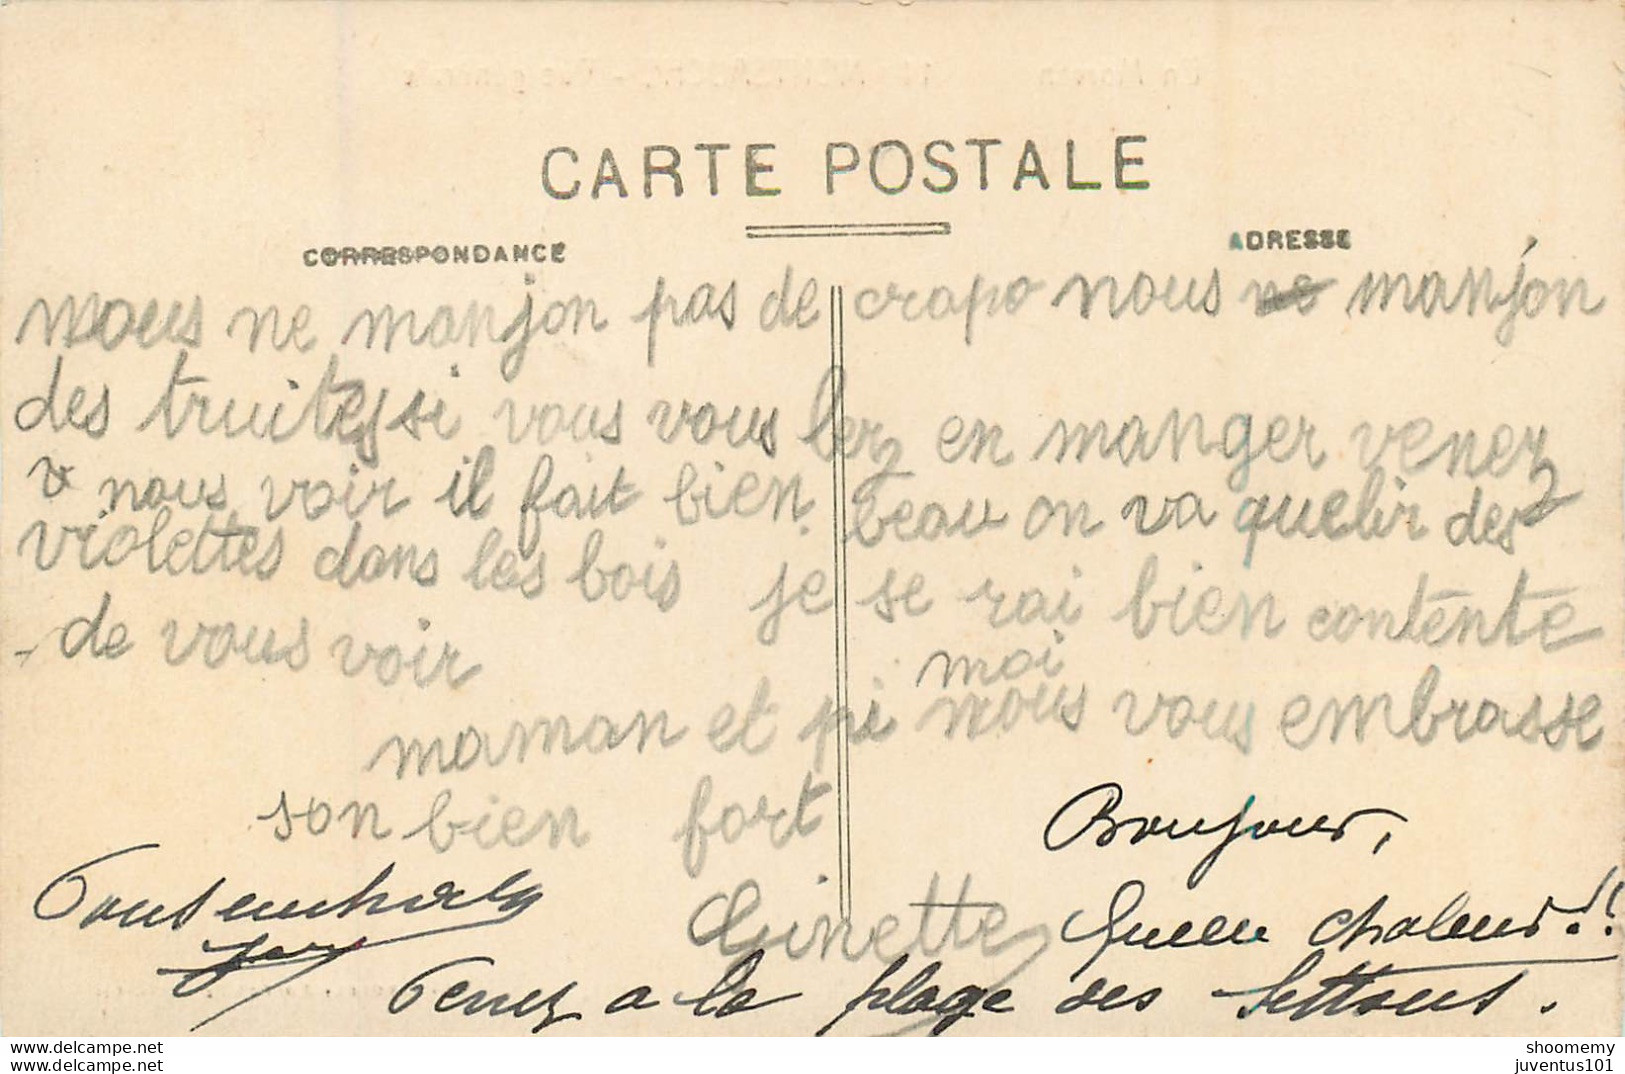 CARTE POSTALE
CORRESPONDANCE
ADRESSE
nous ne manjon pas de crapo nous ne manjon
des truites si vous vous lerz en manger venez
nous voir il fait bien beau on va quelir des
violettes dans les bois je se rai bien contente
de vous voir
moi
maman et pi nous vous embrasse
son bien fort
Ginette
Bonjour,
Quelle chaleur!!
Venez a la plage des Settons.
shoomemy
juventus101